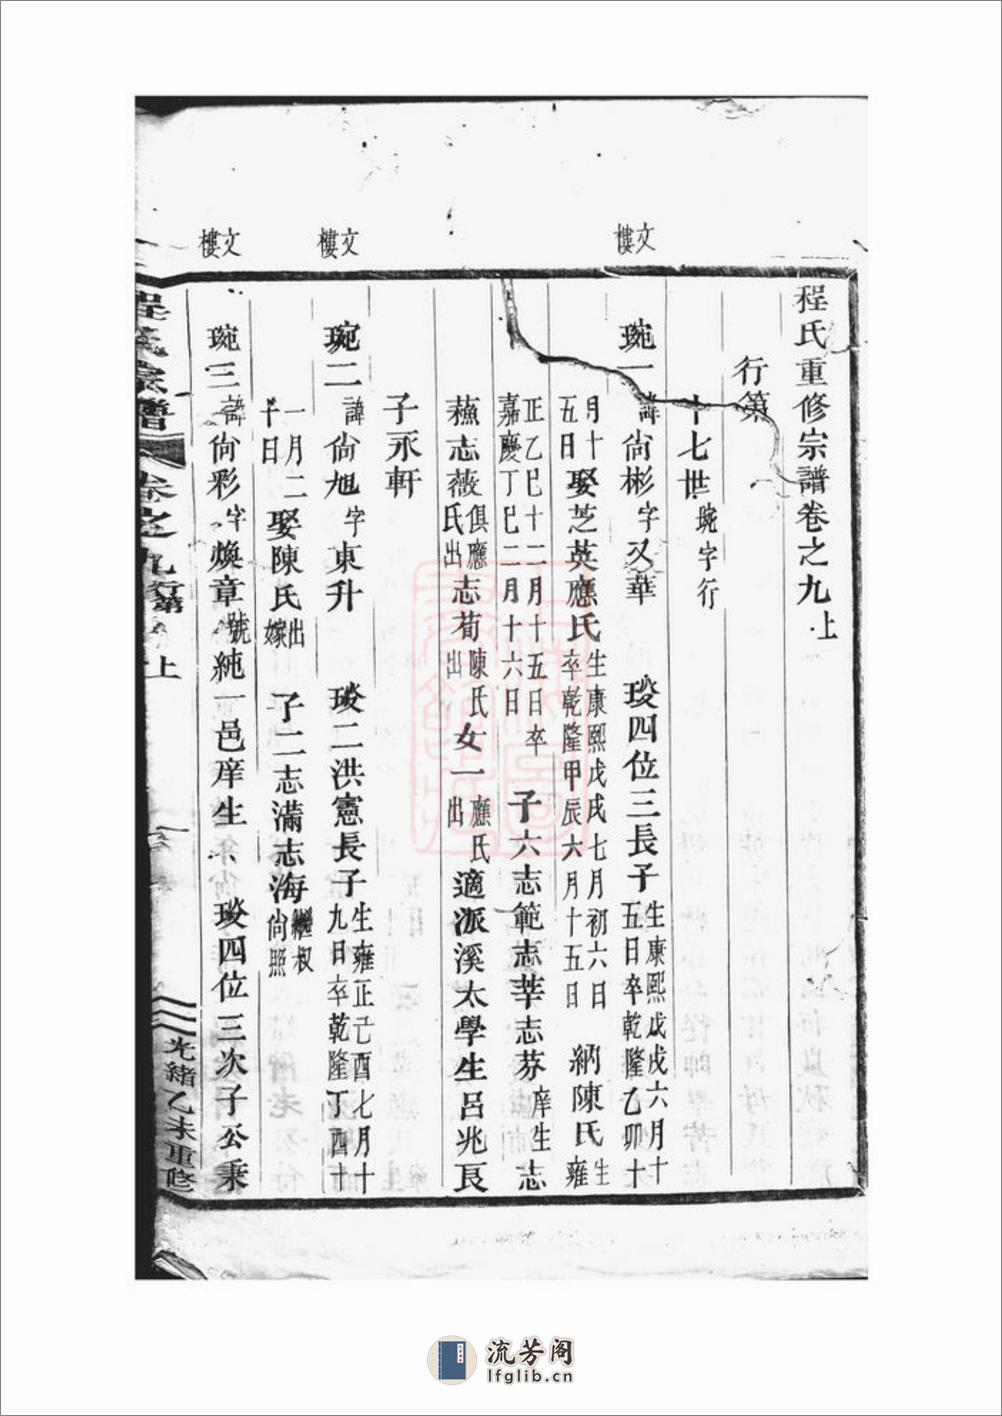 程氏重修宗譜卷之九上
行第
十七世琬字行
文樓
琬一諱尙彬字又華 琰四位三長子生康熙戊戌六月十五日卒乾隆乙卯十
月十五日娶芝英應氏生康熙戊戌七月初六日卒乾隆甲辰六月十五日 納陳氏生雍
正乙巳十二月十五日卒嘉慶丁巳二月十六日 子六志範志莘志芬庠生志
蘓志薇俱應氏出志荀陳氏出女一應氏出適派溪太學生呂兆艮
子永軒
文樓
琬二諱尙旭字東升 琰二洪憲長子生雍正己酉七月十九日卒乾隆丁酉十
一月二十日娶陳氏出嫁 子二志滿志海繼叔尙照
文樓
琬三諱尙彩字煥章號純一邑庠生 琰四位三次子公秉
程氏宗譜 卷之九行第 上 光緒乙未重修
流芳阁
lfglib.cn